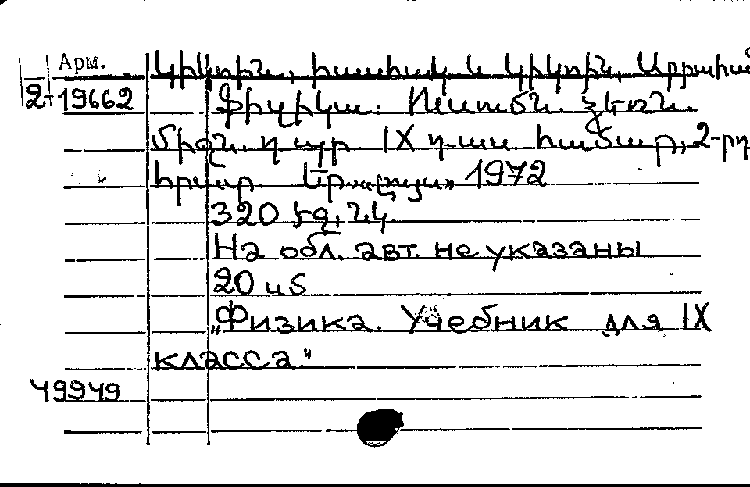 Арм.
Կիկոին, Իսահակ և Կիկոին, Աբրահամ
2-19662 Ֆիզիկա. Ուսումն. ձեռն.
միջն. դպր IX դաս համար, 2-րդ
հրատ. Եր., «Լույս» 1972
320 էջ, նկ.
На обл. авт. не указаны
20 u S
"Физика. Учебник для IX
класса"
49949